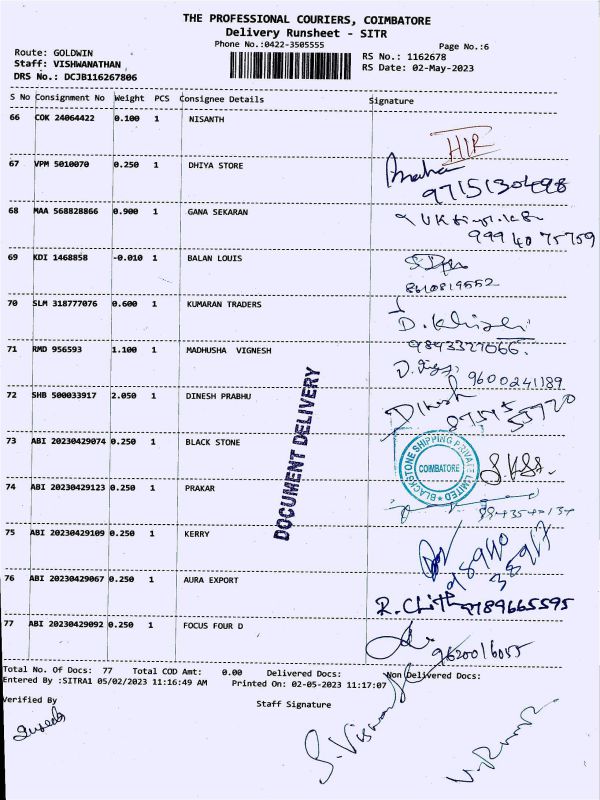 THE PROFESSIONAL COURIERS, COIMBATORE
Delivery Runsheet - SITR
Phone No.:0422-3505555
Page No.:6
Route: GOLDWIN
Staff: VISHWANATHAN
DRS No.: DCJB116267806
RS No.: 1162678
RS Date: 02-May-2023
S No Consignment No Weight PCS Consignee Details Signature
66 COK 24064422 0.100 1 NISANTH
HIR
67 VPM 5010070 0.250 1 DHIYA STORE
9715130498
68 MAA 568828866 0.900 1 GANA SEKARAN
99940 75759
69 KDI 1468858 -0.010 1 BALAN LOUIS
8610819552
70 SLM 318777076 0.600 1 KUMARAN TRADERS
9843327066.
71 RMD 956593 1.100 1 MADHUSHA VIGNESH
9600241189
72 SHB 500033917 2.050 1 DINESH PRABHU
Dinesh
73 ABI 20230429074 0.250 1 BLACK STONE
BLACKSTONE SHIPPING PRIVATE LIMITED
COIMBATORE
DOCUMENT DELIVERY
74 ABI 20230429123 0.250 1 PRAKAR
75 ABI 20230429109 0.250 1 KERRY
76 ABI 20230429067 0.250 1 AURA EXPORT
9789665595
77 ABI 20230429092 0.250 1 FOCUS FOUR D
9620016055
Total No. Of Docs: 77 Total COD Amt: 0.00 Delivered Docs: Non Delivered Docs:
Entered By :SITRA1 05/02/2023 11:16:49 AM Printed On: 02-05-2023 11:17:07
Verified By
Staff Signature